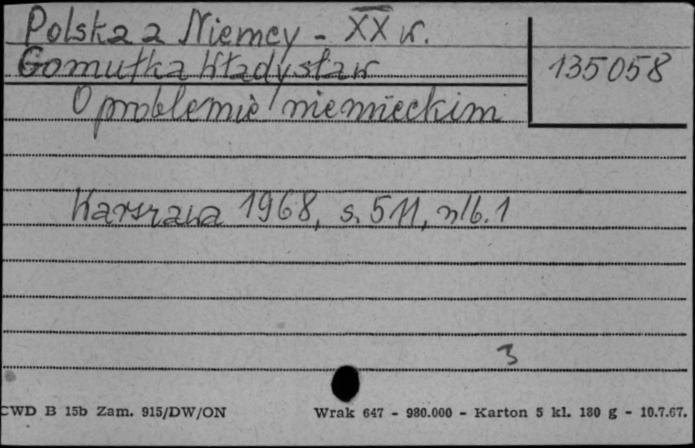 Polska a Niemcy - XX w.
Gomułka Władysław
135058
O problemie niemieckim
Warszawa 1968, s. 511, nlb. 1
3
CWD B 15b Zam. 915/DW/ON
Wrak 647 - 980.000 - Karton 5 kl. 180 g - 10.7.67.